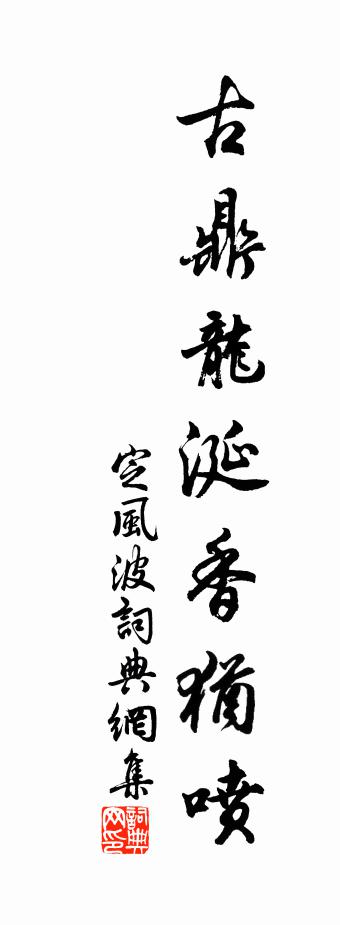 古鼎龍涎香猶噴
定風波詞典網集
詞典网印